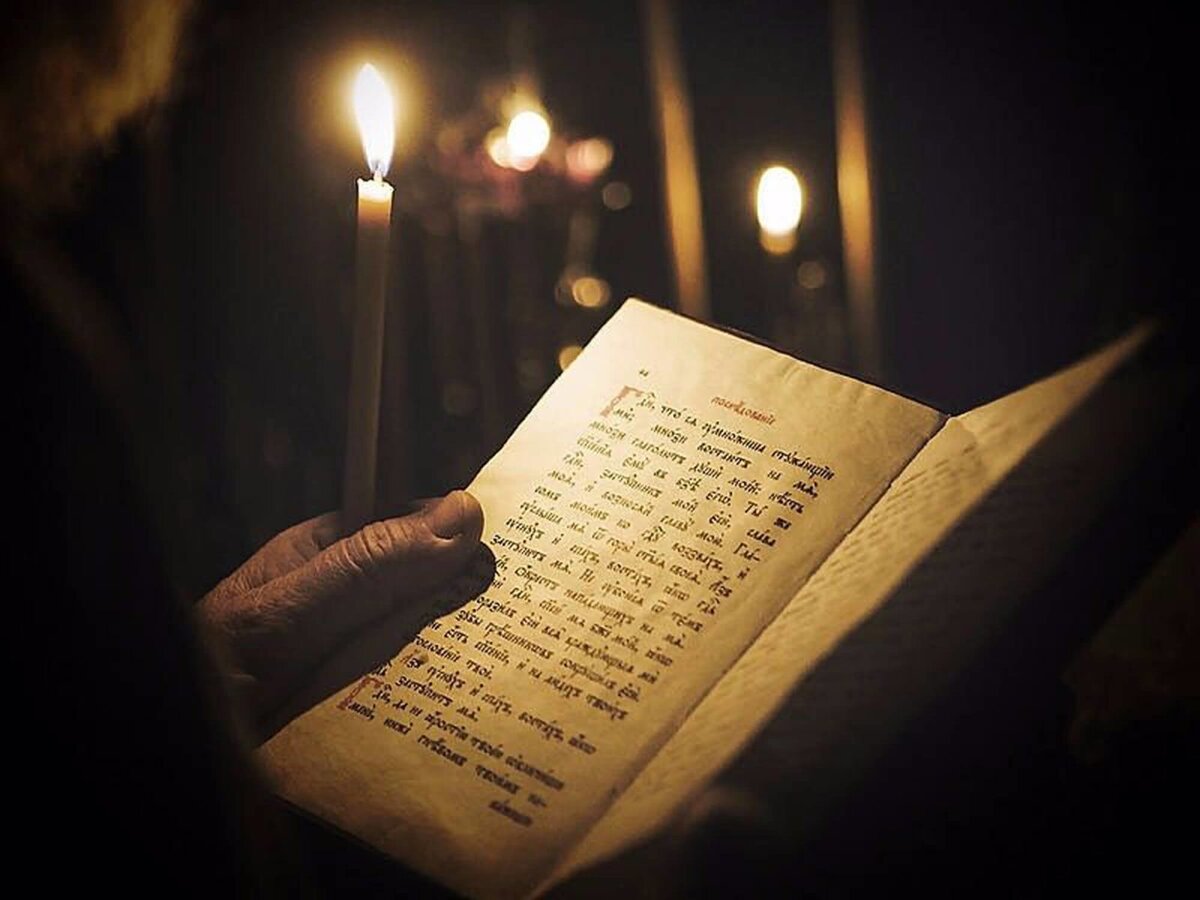 Послѣ́дованїе
Гдⷭ҇и, что́ сѧ ᲂу҆мно́жиша стꙋжа́ющїи
ми; мно́зи востаю́тъ на мѧ̀,
мно́зи глаго́лютъ дꙋшѝ мое́й: нѣ́сть
спⷭ҇нїѧ є҆мꙋ̀ въ бз҃ѣ є҆гѡ̀. Ты́ же
гдⷭ҇и, застꙋ́пникъ мо́й є҆сѝ, сла́ва
моѧ̀, и҆ возносѧ́й главꙋ̀ мою̀. Гла́-
сомъ мои́мъ ко гдⷭ҇ꙋ воззва́хъ, и҆
ᲂу҆слы́ша мѧ̀ ѿ горы̀ ст҃ы́ѧ своеѧ̀. А҆́зъ
ᲂу҆снꙋ́хъ и҆ спа́хъ, воста́хъ, ꙗ҆́кѡ гдⷭ҇ь
застꙋ́питъ мѧ̀. Не ᲂу҆бою́сѧ ѿ те́мъ
ѡ҆́крестъ напа́дающихъ на мѧ̀.
гдⷭ҇и, спаси́ мѧ бж҃е мо́й, ꙗ҆́кѡ
порази́лъ є҆сѝ всѧ̑ враждꙋ́ющыѧ ми
зꙋ́бы грѣ́шникѡвъ сокрꙋши́лъ є҆сѝ.
є҆́сть спⷭ҇нїе, и҆ на лю́дехъ твои́хъ
твоѐ.
А҆́зъ ᲂу҆снꙋ́хъ и҆ спа́хъ, воста́хъ, ꙗ҆́кѡ
застꙋ́питъ мѧ̀.
Гдⷭ҇и, да не ꙗ҆́ростїю твое́ю ѡ҆бличи́ши
менѐ, нижѐ гнѣ́вомъ твои́мъ на-